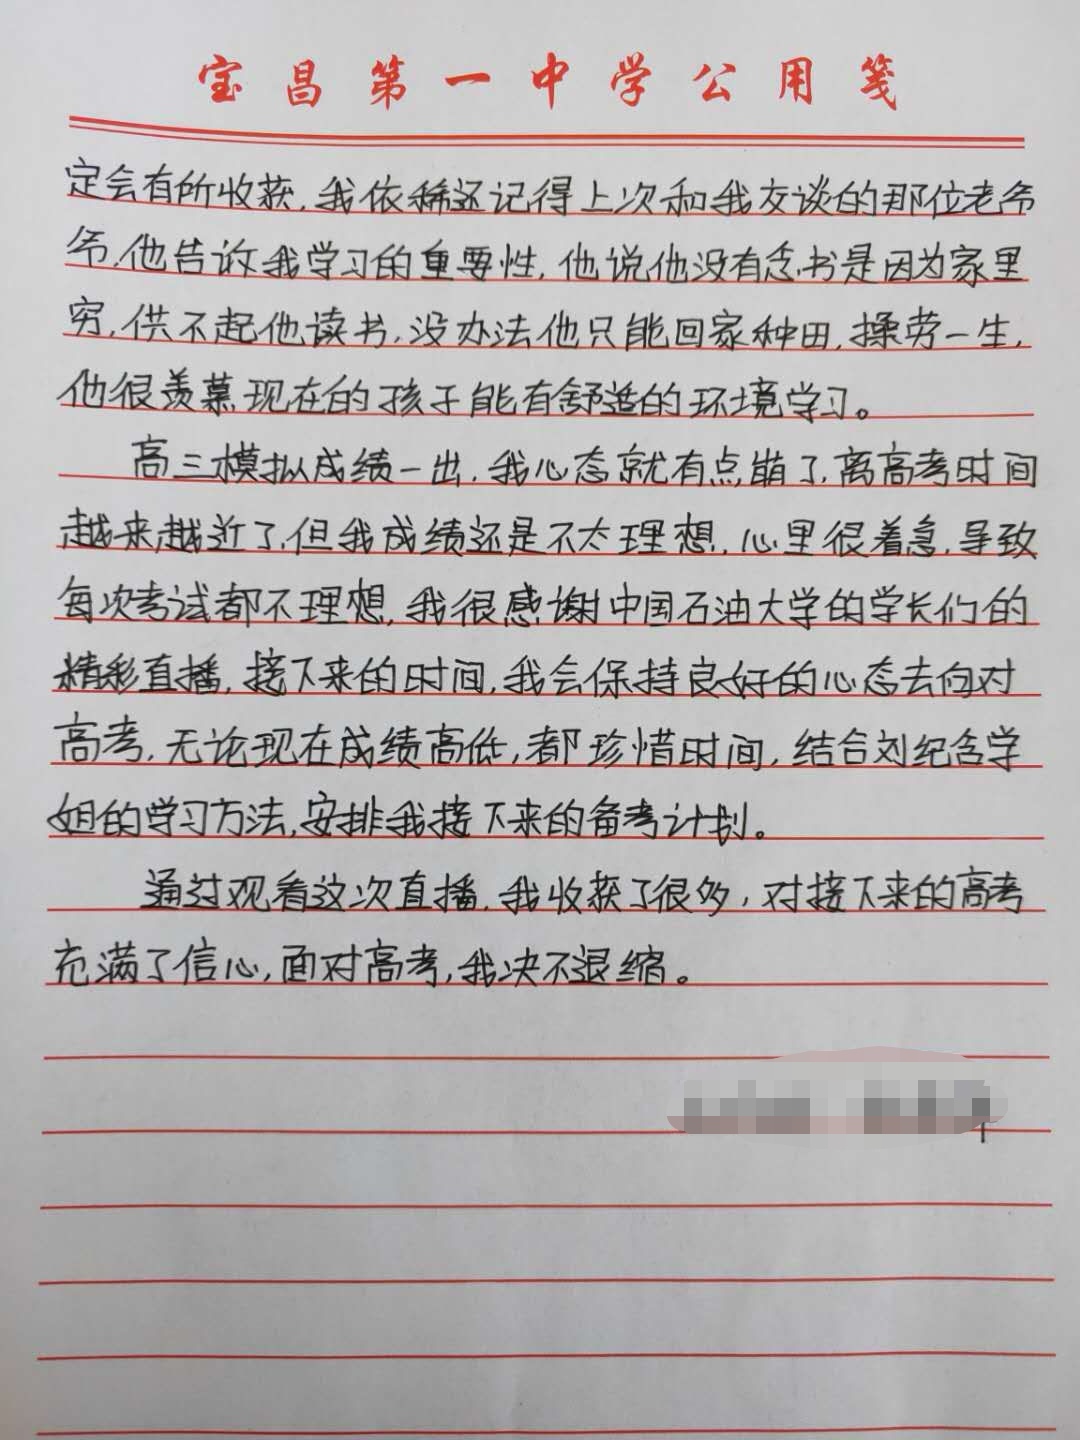 宝昌第一中学公用笺
定会有所收获,我依稀还记得上次和我交谈的那位老爷
爷,他告诉我学习的重要性,他说他没有念书是因为家里
穷,供不起他读书,没办法他只能回家种田,操劳一生,
他很羡慕现在的孩子能有舒适的环境学习。
高三模拟成绩一出,我心态就有点崩了,离高考时间
越来越近了,但我成绩还是不太理想,心里很着急,导致
每次考试都不理想,我很感谢中国石油大学的学长们的
精彩直播,接下来的时间,我会保持良好的心态去向对
高考,无论现在成绩高低,都珍惜时间,结合刘纪含学
姐的学习方法,安排我接下来的备考计划。
通过观看这次直播,我收获了很多,对接下来的高考
充满了信心,面对高考,我决不退缩。